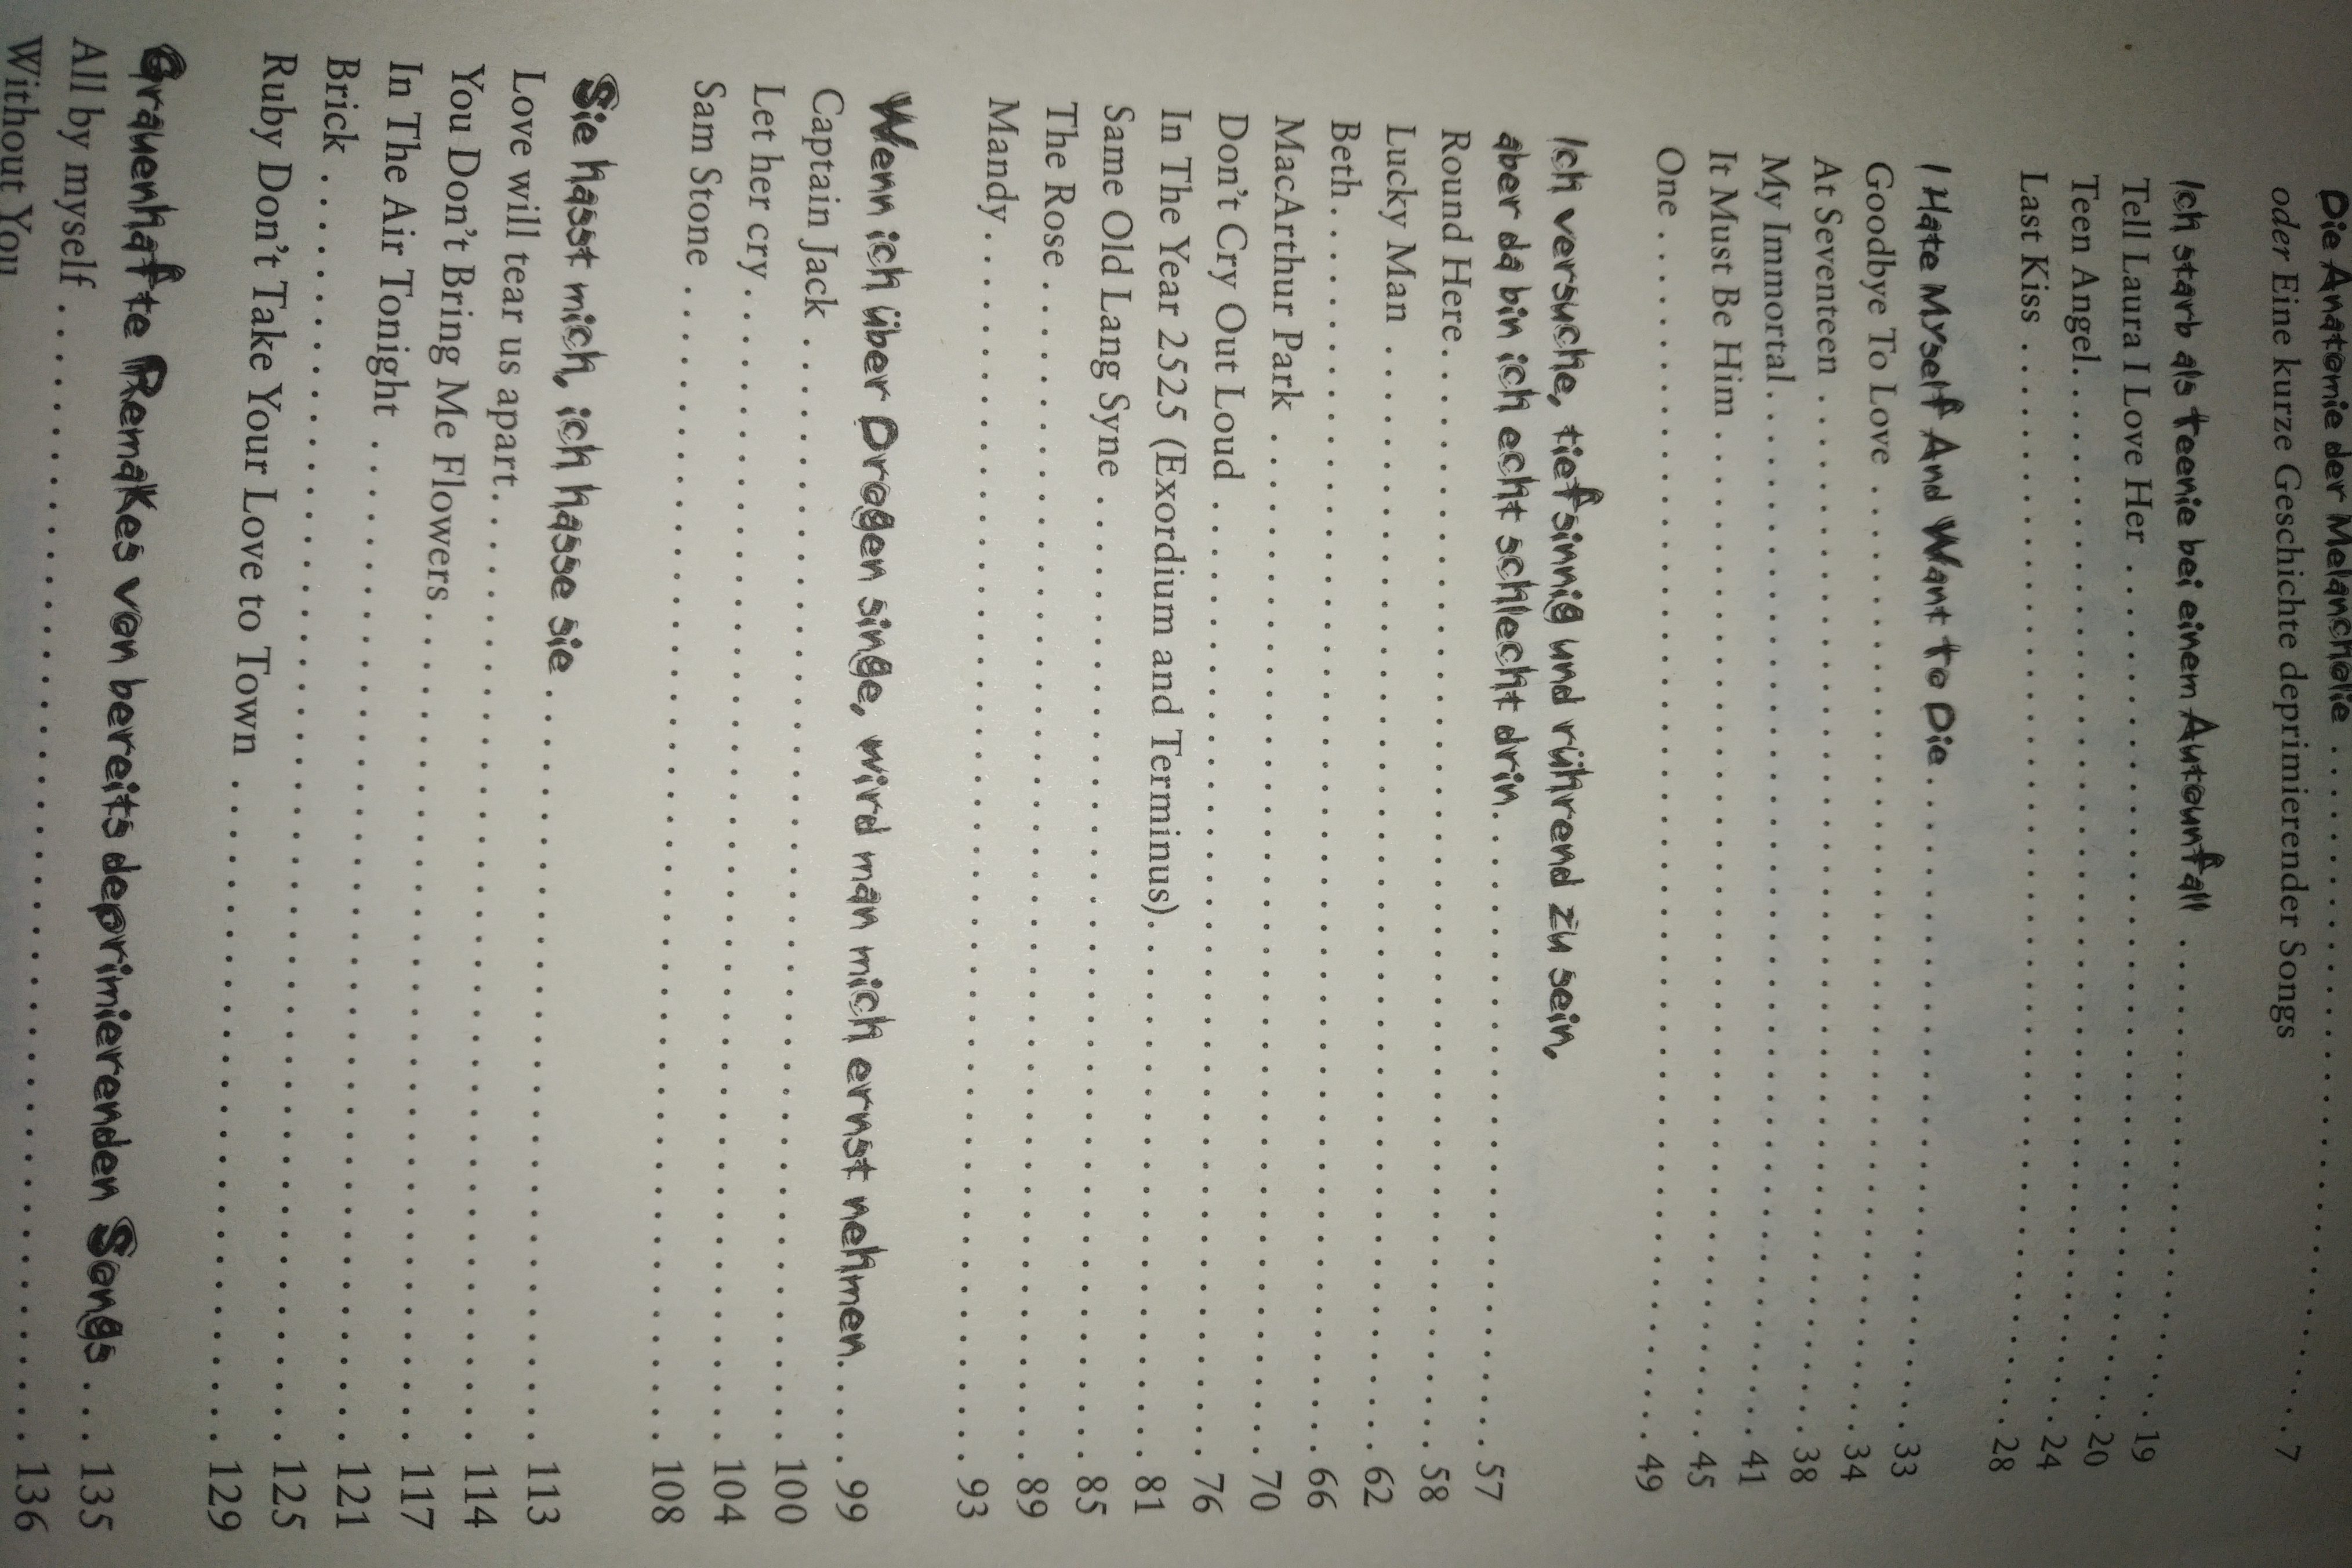 Die Anatomie der Melancholie . . . . . . . . . . . . . . . . . . . . . . . . . . . . . . 7
oder Eine kurze Geschichte deprimierender Songs
Ich starb als Teenie bei einem Autounfall . . . . . . . . . . . . . . . . . . . . 19
Tell Laura I Love Her . . . . . . . . . . . . . . . . . . . . . . . . . . . . . . 20
Teen Angel. . . . . . . . . . . . . . . . . . . . . . . . . . . . . . 24
Last Kiss . . . . . . . . . . . . . . . . . . . . . . . . . . . . . . 28
I Hate Myself And Want to Die . . . . . . . . . . . . . . . . . . . . 33
Goodbye To Love . . . . . . . . . . . . . . . . . . . . . . . . . . . . . . 34
At Seventeen . . . . . . . . . . . . . . . . . . . . . . . . . . . . . . 38
My Immortal . . . . . . . . . . . . . . . . . . . . . . . . . . . . . . 41
It Must Be Him . . . . . . . . . . . . . . . . . . . . . . . . . . . . . . 45
One . . . . . . . . . . . . . . . . . . . . . . . . . . . . . . 49
Ich versuche, tiefsinnig und rührend zu sein,
aber da bin ich echt schlecht drin. . . . . . . . . . . . . . . . . . . . 57
Round Here . . . . . . . . . . . . . . . . . . . . . . . . . . . . . . 58
Lucky Man . . . . . . . . . . . . . . . . . . . . . . . . . . . . . . 62
Beth . . . . . . . . . . . . . . . . . . . . . . . . . . . . . . 66
MacArthur Park . . . . . . . . . . . . . . . . . . . . . . . . . . . . . . 70
Don't Cry Out Loud . . . . . . . . . . . . . . . . . . . . . . . . . . . . . . 76
In The Year 2525 (Exordium and Terminus) . . . . . . . . . . . . . . . . . . 81
Same Old Lang Syne . . . . . . . . . . . . . . . . . . . . . . . . . . . . . . 85
The Rose . . . . . . . . . . . . . . . . . . . . . . . . . . . . . . 89
Mandy . . . . . . . . . . . . . . . . . . . . . . . . . . . . . . 93
Wenn ich über Drogen singe, wird man mich ernst nehmen. . . . . 99
Captain Jack . . . . . . . . . . . . . . . . . . . . . . . . . . . . . . 100
Let her cry . . . . . . . . . . . . . . . . . . . . . . . . . . . . . . 104
Sam Stone . . . . . . . . . . . . . . . . . . . . . . . . . . . . . . 108
Sie hasst mich, ich hasse sie . . . . . . . . . . . . . . . . . . . . 113
Love will tear us apart . . . . . . . . . . . . . . . . . . . . . . . . . . . . . . 114
You Don't Bring Me Flowers . . . . . . . . . . . . . . . . . . . . . . . . 117
In The Air Tonight . . . . . . . . . . . . . . . . . . . . . . . . . . . . . . 121
Brick . . . . . . . . . . . . . . . . . . . . . . . . . . . . . . 125
Ruby Don't Take Your Love to Town . . . . . . . . . . . . . . . . . . . . 129
Grauenhafte Remakes von bereits deprimierenden Songs . . . 135
All by myself . . . . . . . . . . . . . . . . . . . . . . . . . . . . . . 136
Without You